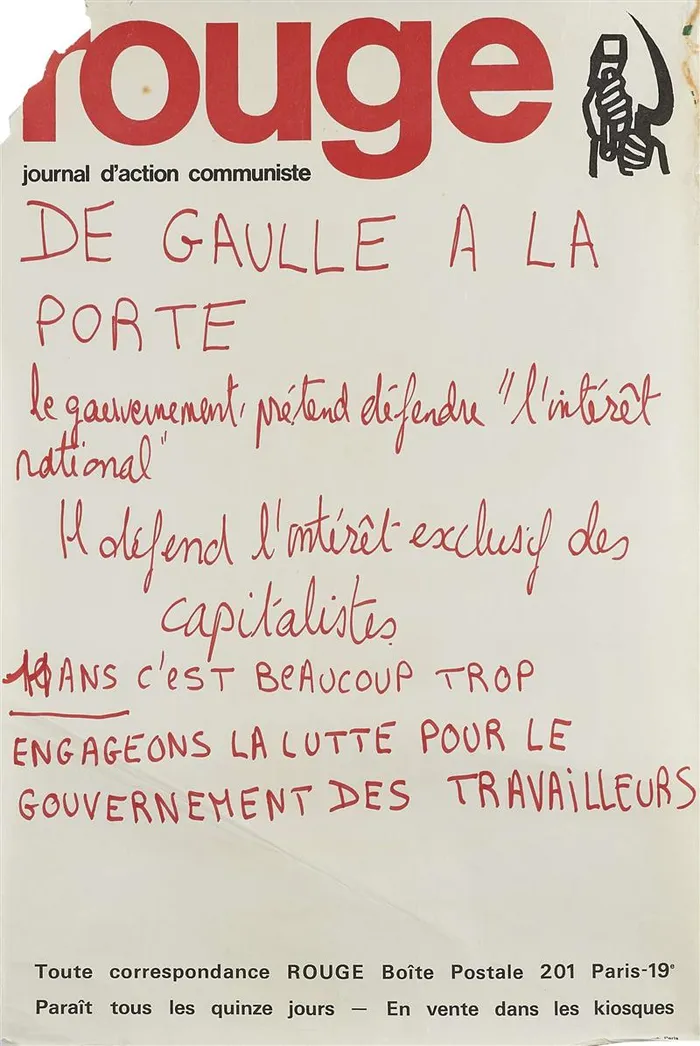 rouge
journal d'action communiste
DE GAULLE A LA
PORTE
le gouvernement, prétend défendre "l'intérêt
national"
Il défend l'intérêt exclusif des
capitalistes
10 ANS C'EST BEAUCOUP TROP
ENGAGEONS LA LUTTE POUR LE
GOUVERNEMENT DES TRAVAILLEURS
Toute correspondance ROUGE Boîte Postale 201 Paris-19e
Paraît tous les quinze jours — En vente dans les kiosques
Paris